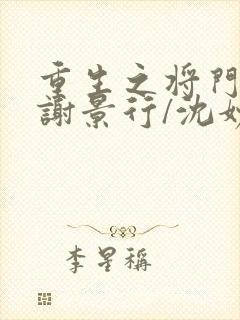 重生之将門
謝景行/沈妙
李星稱